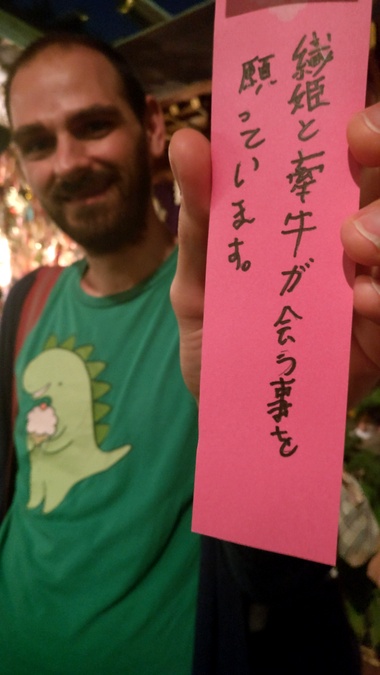 織姫と牽牛が会う事を
願っています。